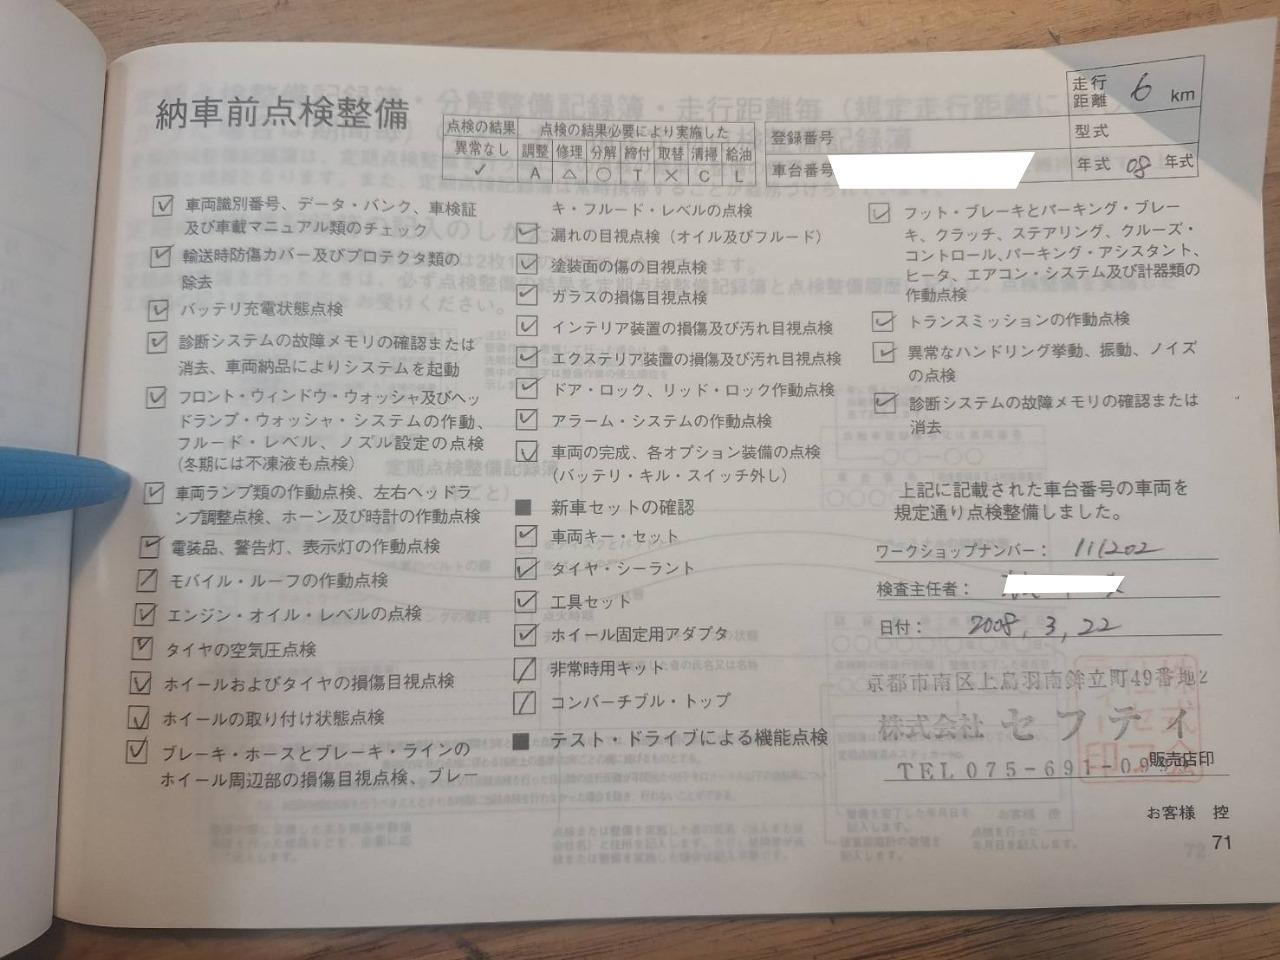 納車前点検整備
点検の結果 点検の結果必要により実施した
異常なし 調整 修理 分解 締付 取替 清掃 給油
✓ A △ ○ T × C L
登録番号
車台番号
走行距離 6 km
型式
年式 08 年式
車両識別番号、データ・バンク、車検証
及び車載マニュアル類のチェック
輸送時防傷カバー及びプロテクタ類の
除去
バッテリ充電状態点検
診断システムの故障メモリの確認または
消去、車両納品によりシステムを起動
フロント・ウィンドウ・ウォッシャ及びヘッ
ドランプ・ウォッシャ・システムの作動、
フルード・レベル、ノズル設定の点検
(冬期には不凍液も点検)
車両ランプ類の作動点検、左右ヘッドラ
ンプ調整点検、ホーン及び時計の作動点検
電装品、警告灯、表示灯の作動点検
モバイル・ルーフの作動点検
エンジン・オイル・レベルの点検
タイヤの空気圧点検
ホイールおよびタイヤの損傷目視点検
ホイールの取り付け状態点検
ブレーキ・ホースとブレーキ・ラインの
ホイール周辺部の損傷目視点検、ブレー
キ・フルード・レベルの点検
漏れの目視点検(オイル及びフルード)
塗装面の傷の目視点検
ガラスの損傷目視点検
インテリア装置の損傷及び汚れ目視点検
エクステリア装置の損傷及び汚れ目視点検
ドア・ロック、リッド・ロック作動点検
アラーム・システムの作動点検
車両の完成、各オプション装備の点検
(バッテリ・キル・スイッチ外し)
■ 新車セットの確認
車両キー・セット
タイヤ・シーラント
工具セット
ホイール固定用アダプタ
非常時用キット
コンバーチブル・トップ
■ テスト・ドライブによる機能点検
フット・ブレーキとパーキング・ブレー
キ、クラッチ、ステアリング、クルーズ・
コントロール、パーキング・アシスタント、
ヒータ、エアコン・システム及び計器類の
作動点検
トランスミッションの作動点検
異常なハンドリング挙動、振動、ノイズ
の点検
診断システムの故障メモリの確認または
消去
上記に記載された車台番号の車両を
規定通り点検整備しました。
ワークショップナンバー: 111202
検査主任者:
日付: 2008, 3, 22
京都市南区上鳥羽南鉾立町49番地2
株式会社 セフティ
TEL 075-691-0
販売店印
お客様 控
71